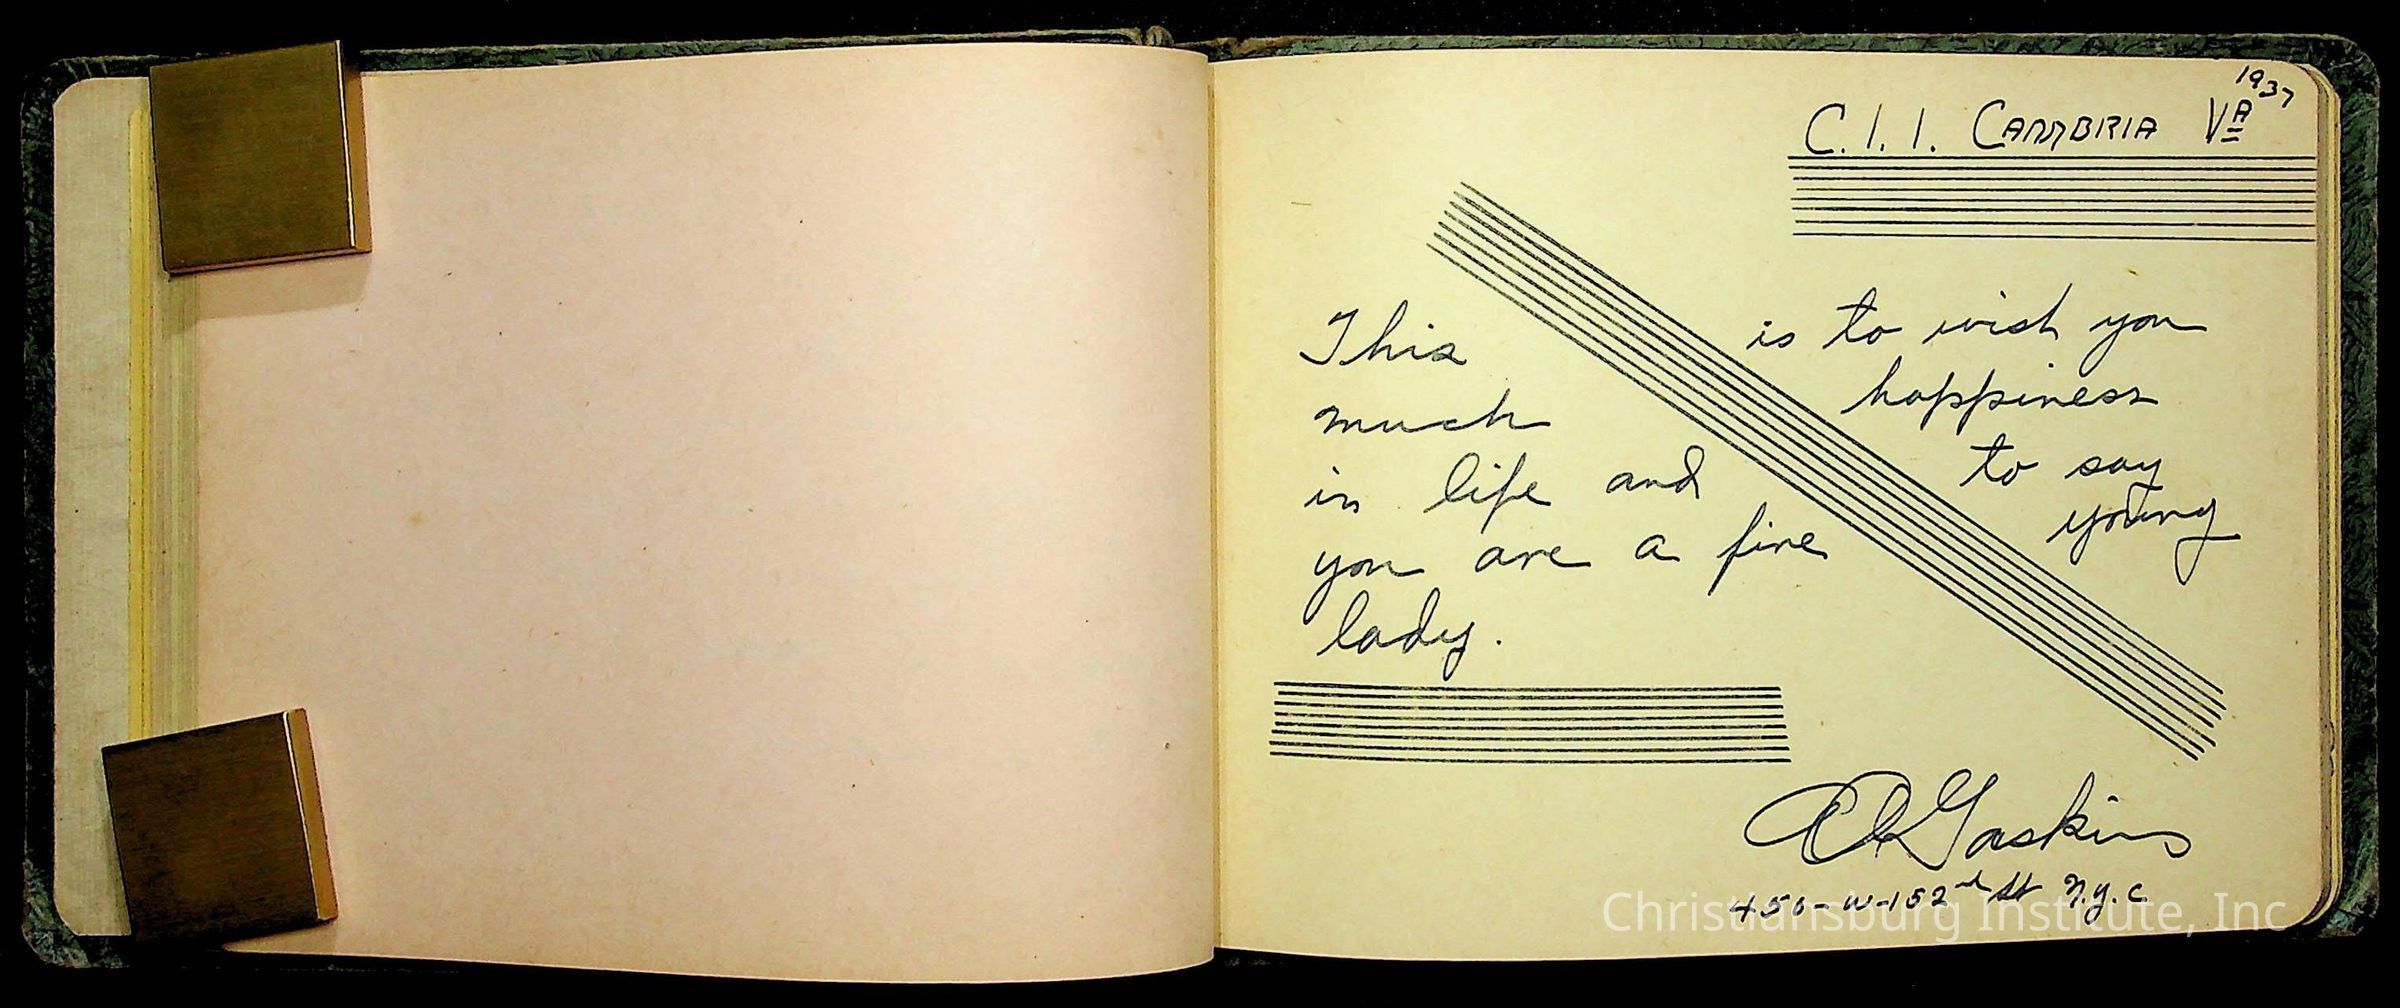 1937
C. I. I. CAMBRIA VA
This is to wish you
much happiness
in life and to say
you are a fine young
lady.
Gaskins
450-W-152nd St N.Y.C
Christiansburg Institute, Inc